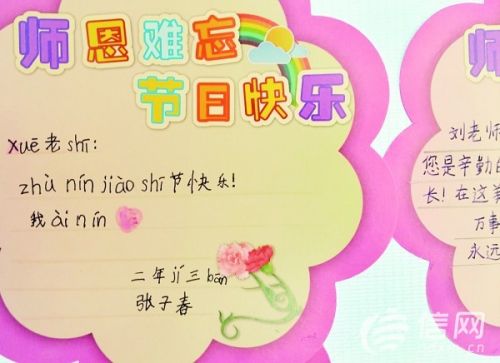 师恩难忘
节日快乐
xuē老shī:
zhù nín jiào shī节快乐!
我ài nín
二年jí三bān
张子春
师
刘老师
您是辛勤的
长!在这美
万事
永远
信网